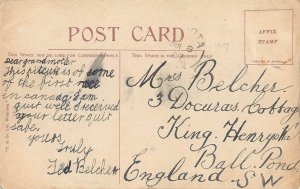 POST CARD
THIS SPACE MAY BE USED FOR CORRESPONDENCE
THIS SPACE IS
AFFIX
STAMP
Dear grandmother
This picture is of some
of the first
in canada I am
quit well I received
your letter quit
safe.
yours
Truly
Ted Belcher
Mrs Belcher.
3 Docuras Cottag
King. Henry
Ball. Pond
England. S W